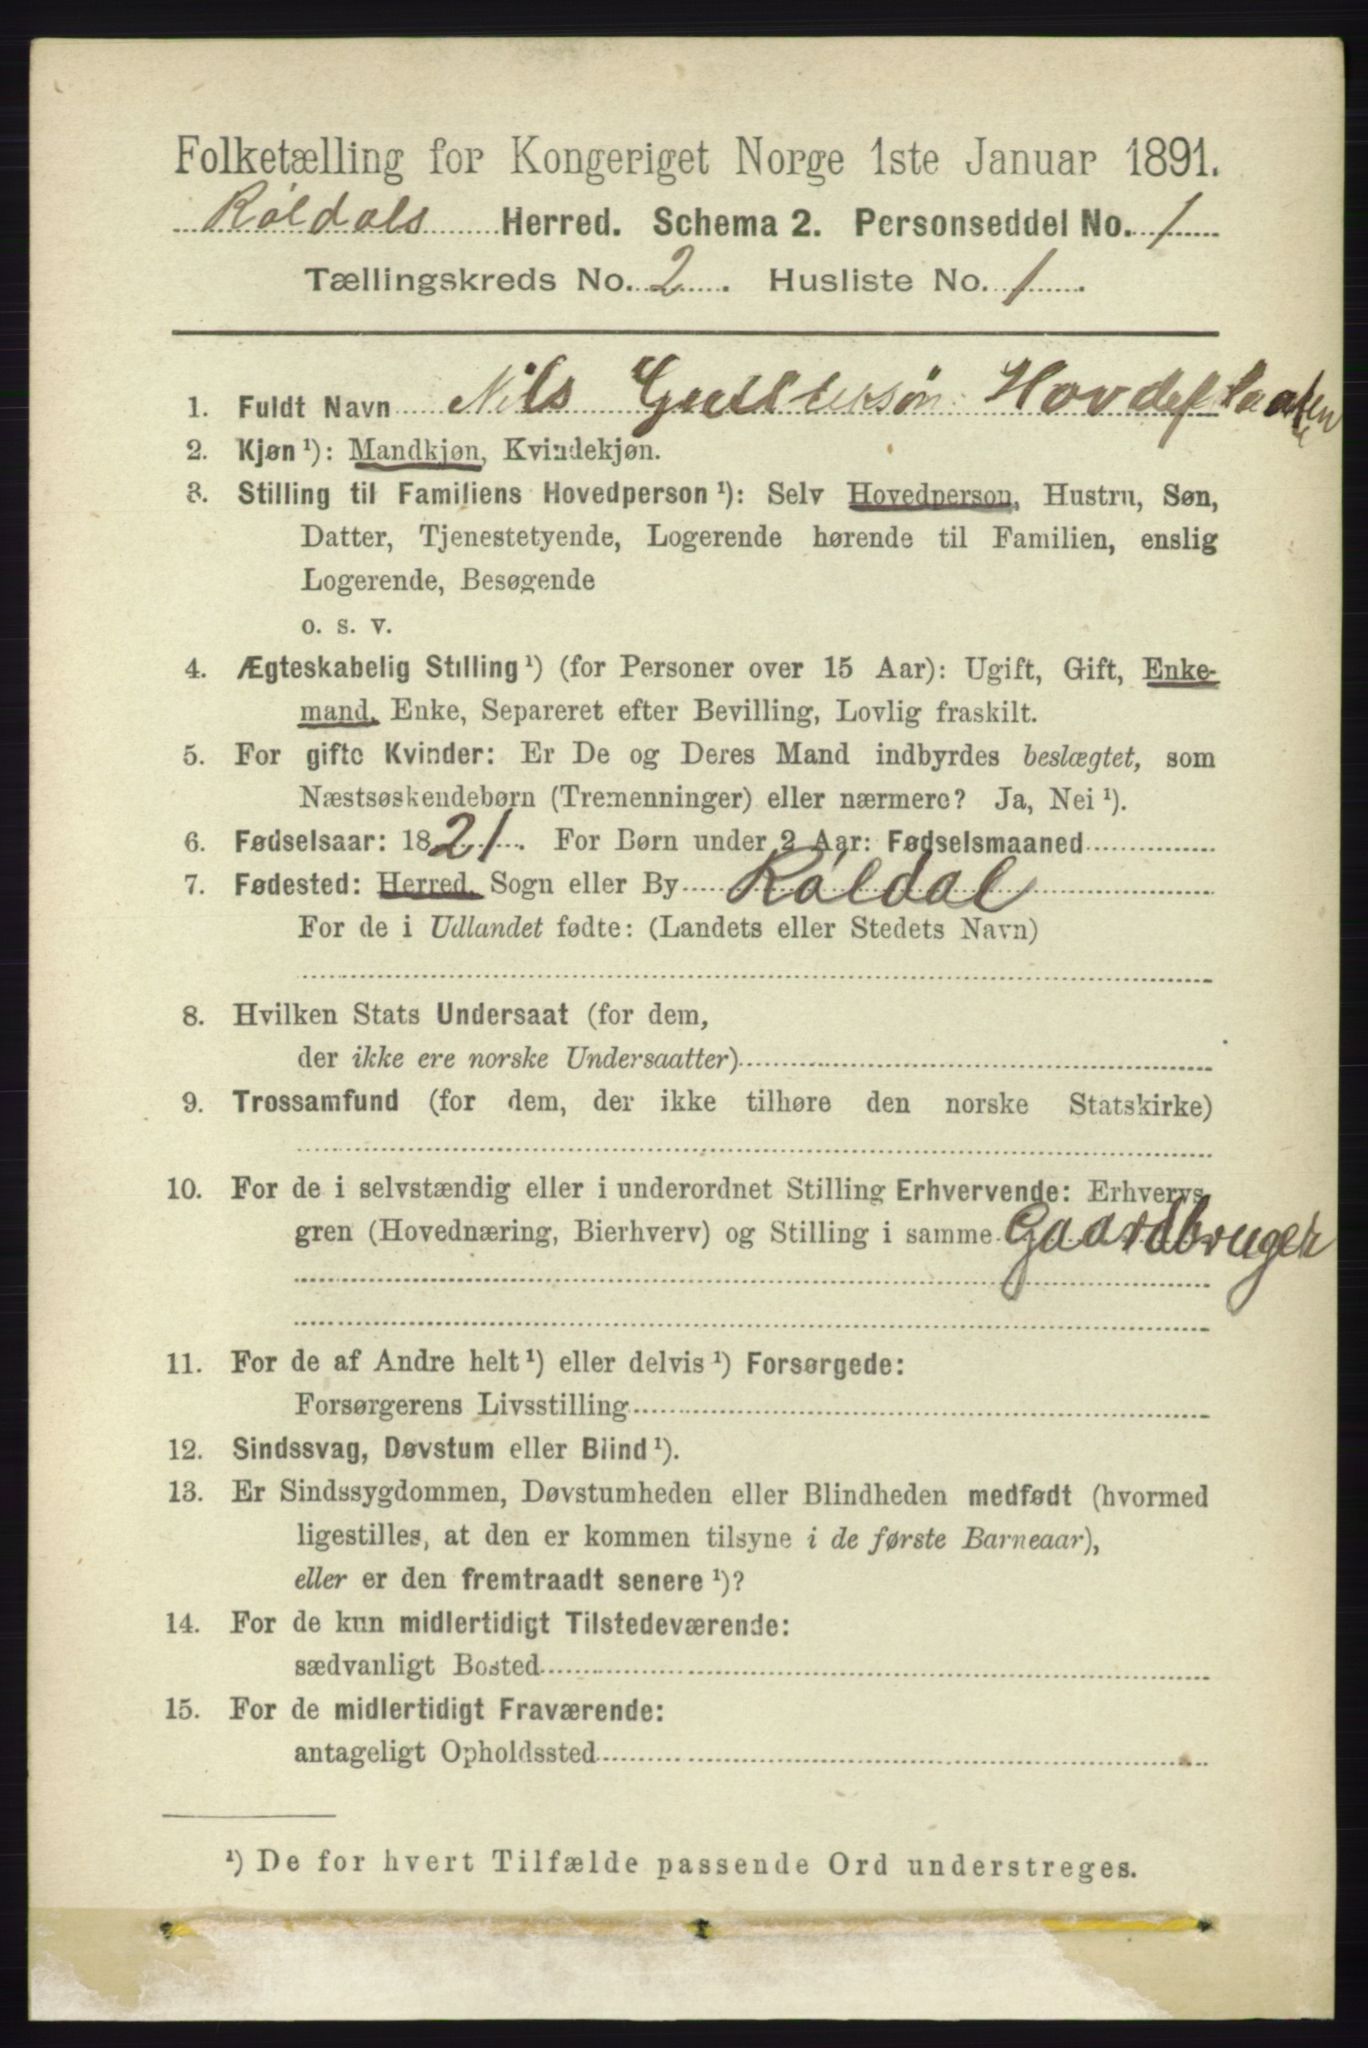 Folketælling for Kongeriget Norge 1ste Januar 1891.
Røldals Herred. Schema 2. Personseddel No. 1
Tællingskreds No. 2. Husliste No. 1.
1. Fuldt Navn Nils Gullieksøn Hovdeflaaten
2. Kjøn ¹): Mandkjøn, Kvindekjøn.
3. Stilling til Familiens Hovedperson ¹): Selv Hovedperson, Hustru, Søn,
Datter, Tjenestetyende, Logerende hørende til Familien, enslig
Logerende, Besøgende
o. s. v.
4. Ægteskabelig Stilling ¹) (for Personer over 15 Aar): Ugift, Gift, Enke-
mand, Enke, Separeret efter Bevilling, Lovlig fraskilt.
5. For gifte Kvinder: Er De og Deres Mand indbyrdes beslægtet, som
Næstsøskendebørn (Tremenninger) eller nærmere? Ja, Nei ¹).
6. Fødselsaar: 1821. For Børn under 2 Aar: Fødselsmaaned
7. Fødested: Herred, Sogn eller By Røldal
For de i Udlandet fødte: (Landets eller Stedets Navn)
8. Hvilken Stats Undersaat (for dem,
der ikke ere norske Undersaatter)
9. Trossamfund (for dem, der ikke tilhøre den norske Statskirke)
10. For de i selvstændig eller i underordnet Stilling Erhvervende: Erhvervs-
gren (Hovednæring, Bierhverv) og Stilling i samme Gaardbruger
11. For de af Andre helt ¹) eller delvis ¹) Forsørgede:
Forsørgerens Livsstilling
12. Sindssvag, Døvstum eller Blind ¹).
13. Er Sindssygdommen, Døvstumheden eller Blindheden medfødt (hvormed
ligestilles, at den er kommen tilsyne i de første Barneaar),
eller er den fremtraadt senere ¹)?
14. For de kun midlertidigt Tilstedeværende:
sædvanligt Bosted
15. For de midlertidigt Fraværende:
antageligt Opholdssted
¹) De for hvert Tilfælde passende Ord understreges.